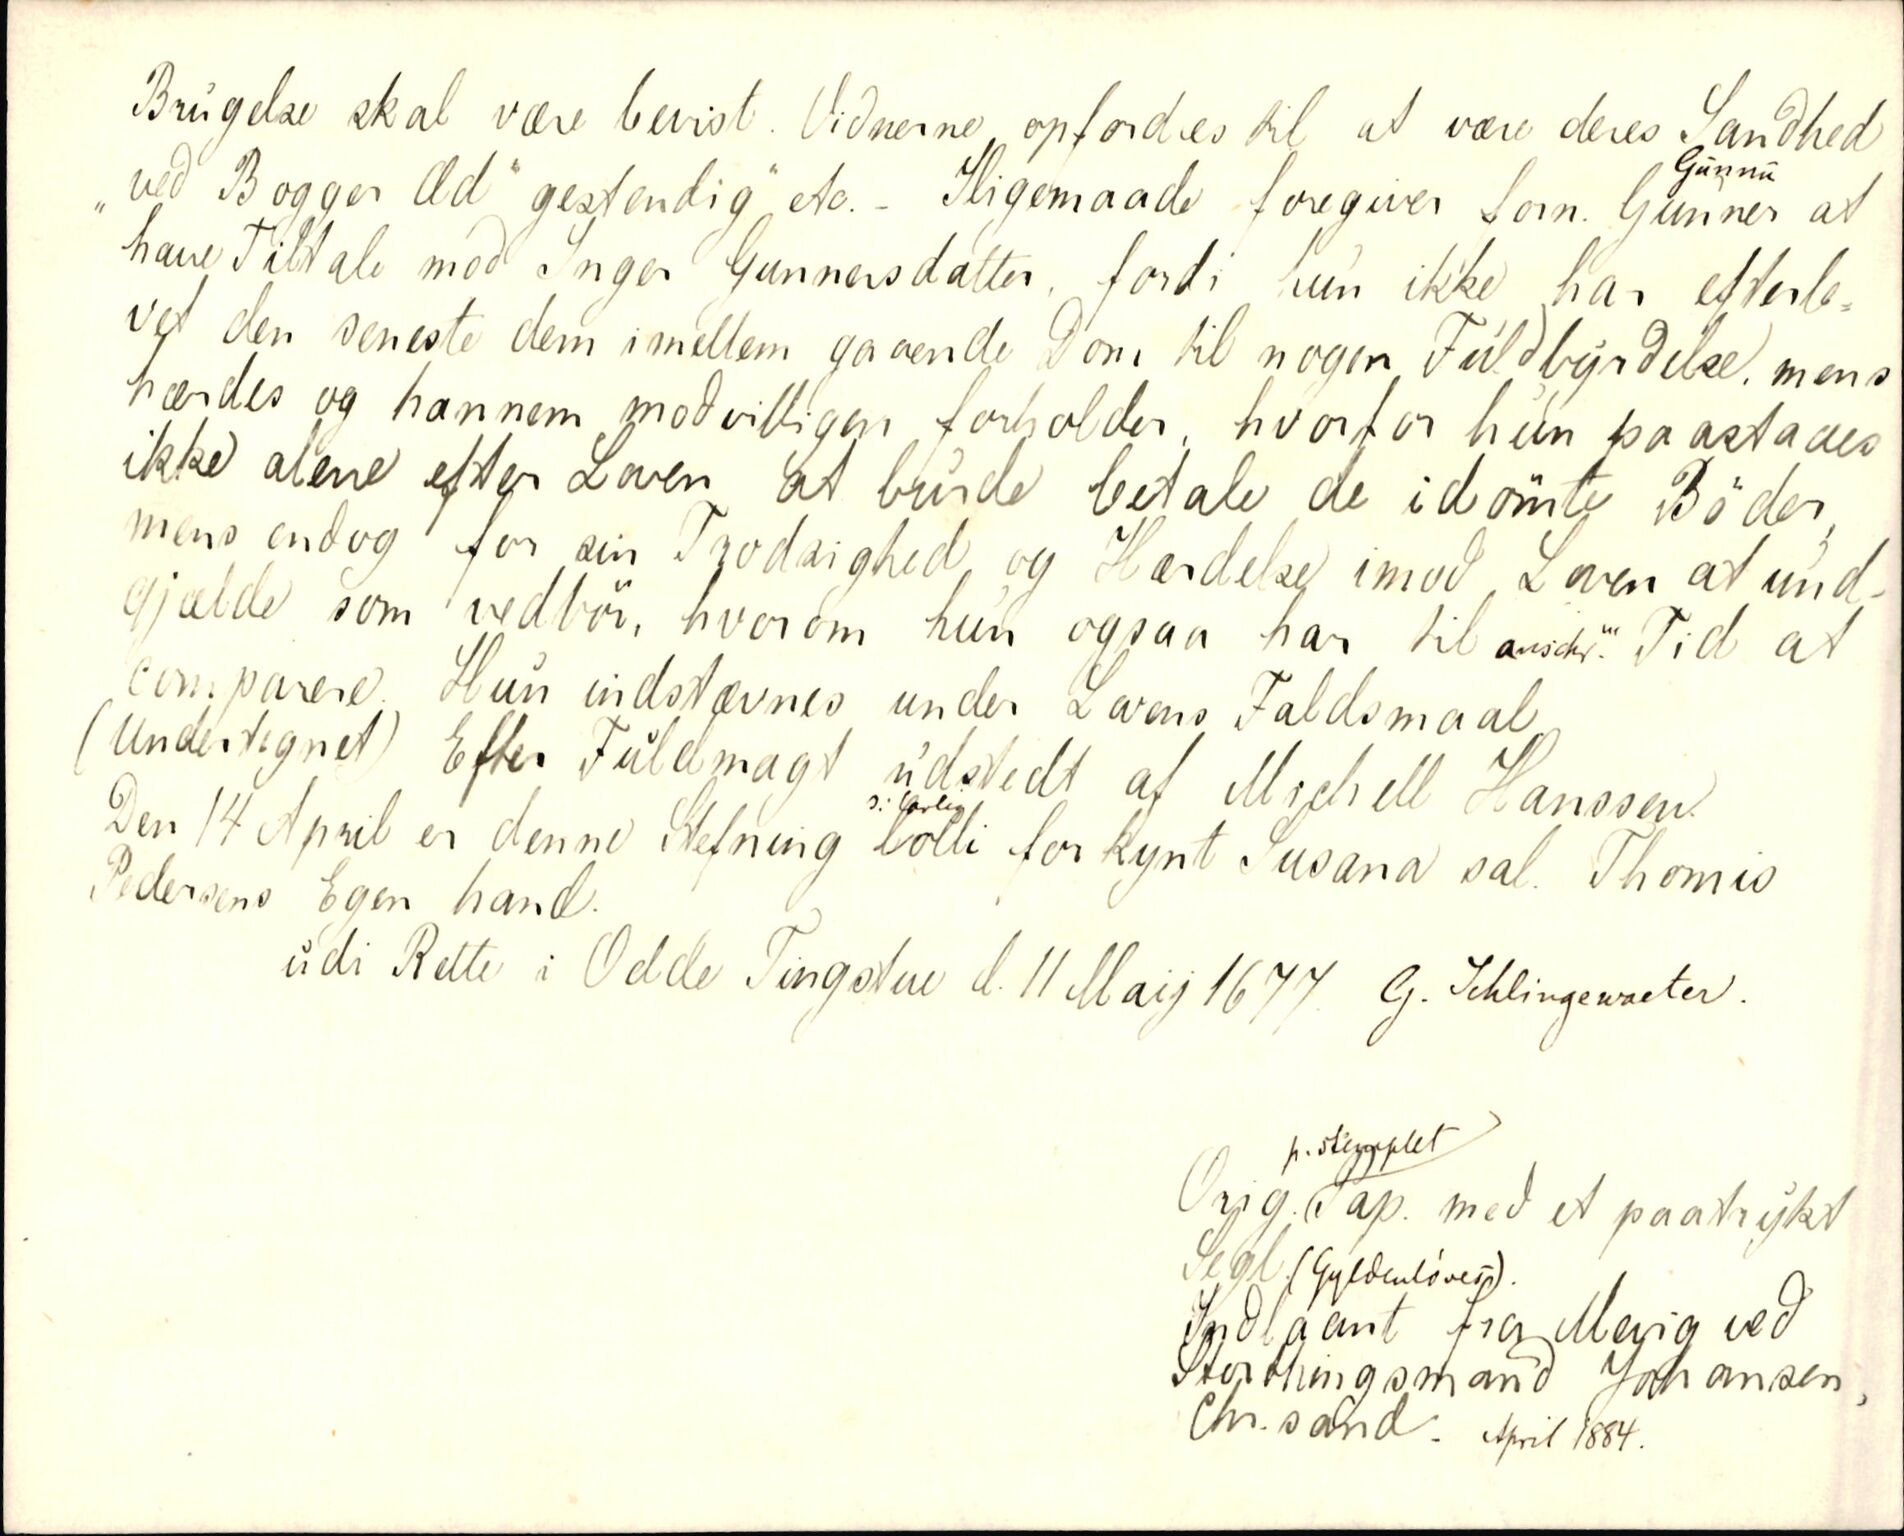 Brugelse skal være bevist. Vidnerne opfordres til at være deres Sandhed
"ved Bogger Æd" gestendig" etc. - Iligemaade foregiver forn. Gunner at
Gunnu
have Tiltale mod Inger Gunnersdatter, fordi hun ikke har efterle-
vet den seneste dem imellem gaaende Dom til nogen Fuldbyrdelse, mens
hærdes og hannem modvilligen forholder, hvorfor hun paastaaes
ikke alene efter Loven at burde betale de idømte Bøder,
mens endog for sin Trodsighed og Hærdelse imod Loven at und-
gjælde som vedbør, hvorom hun ogsaa har til Tid at
comparere. Hun indstævnes under Lovens Faldsmaal
(Undertegnet) Efter Fuldmagt udstedt af Michell Hanssen.
Den 14 April er denne Stefning lolli forkynt Susana sal. Thomis
Pedersens Egen hand.
udi Rette i Odde Tingstue d. 11 Maij 1677. G. Schlingewaeter.
p. stemplet
Orig. Pap. med et paatrykt
Segl (Gyldenløves).
Indlaant fra Mevig ved
Storthingsmand Johansen,
Chr.sand. April 1884.